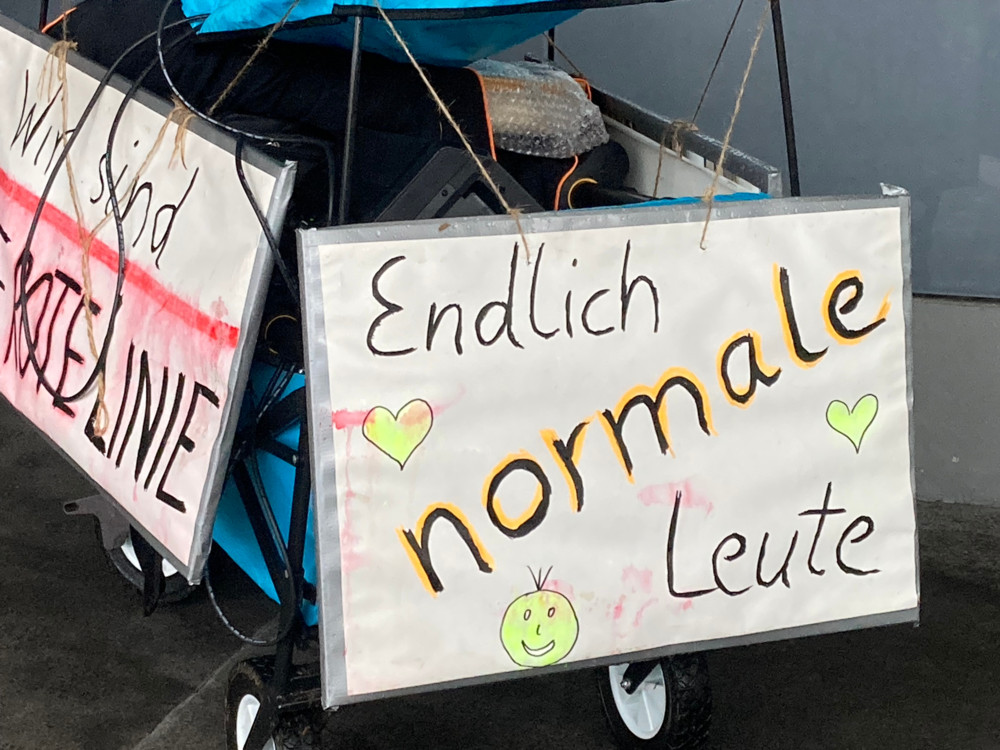 Wir sind
ROTE LINIE
Endlich
normale
Leute